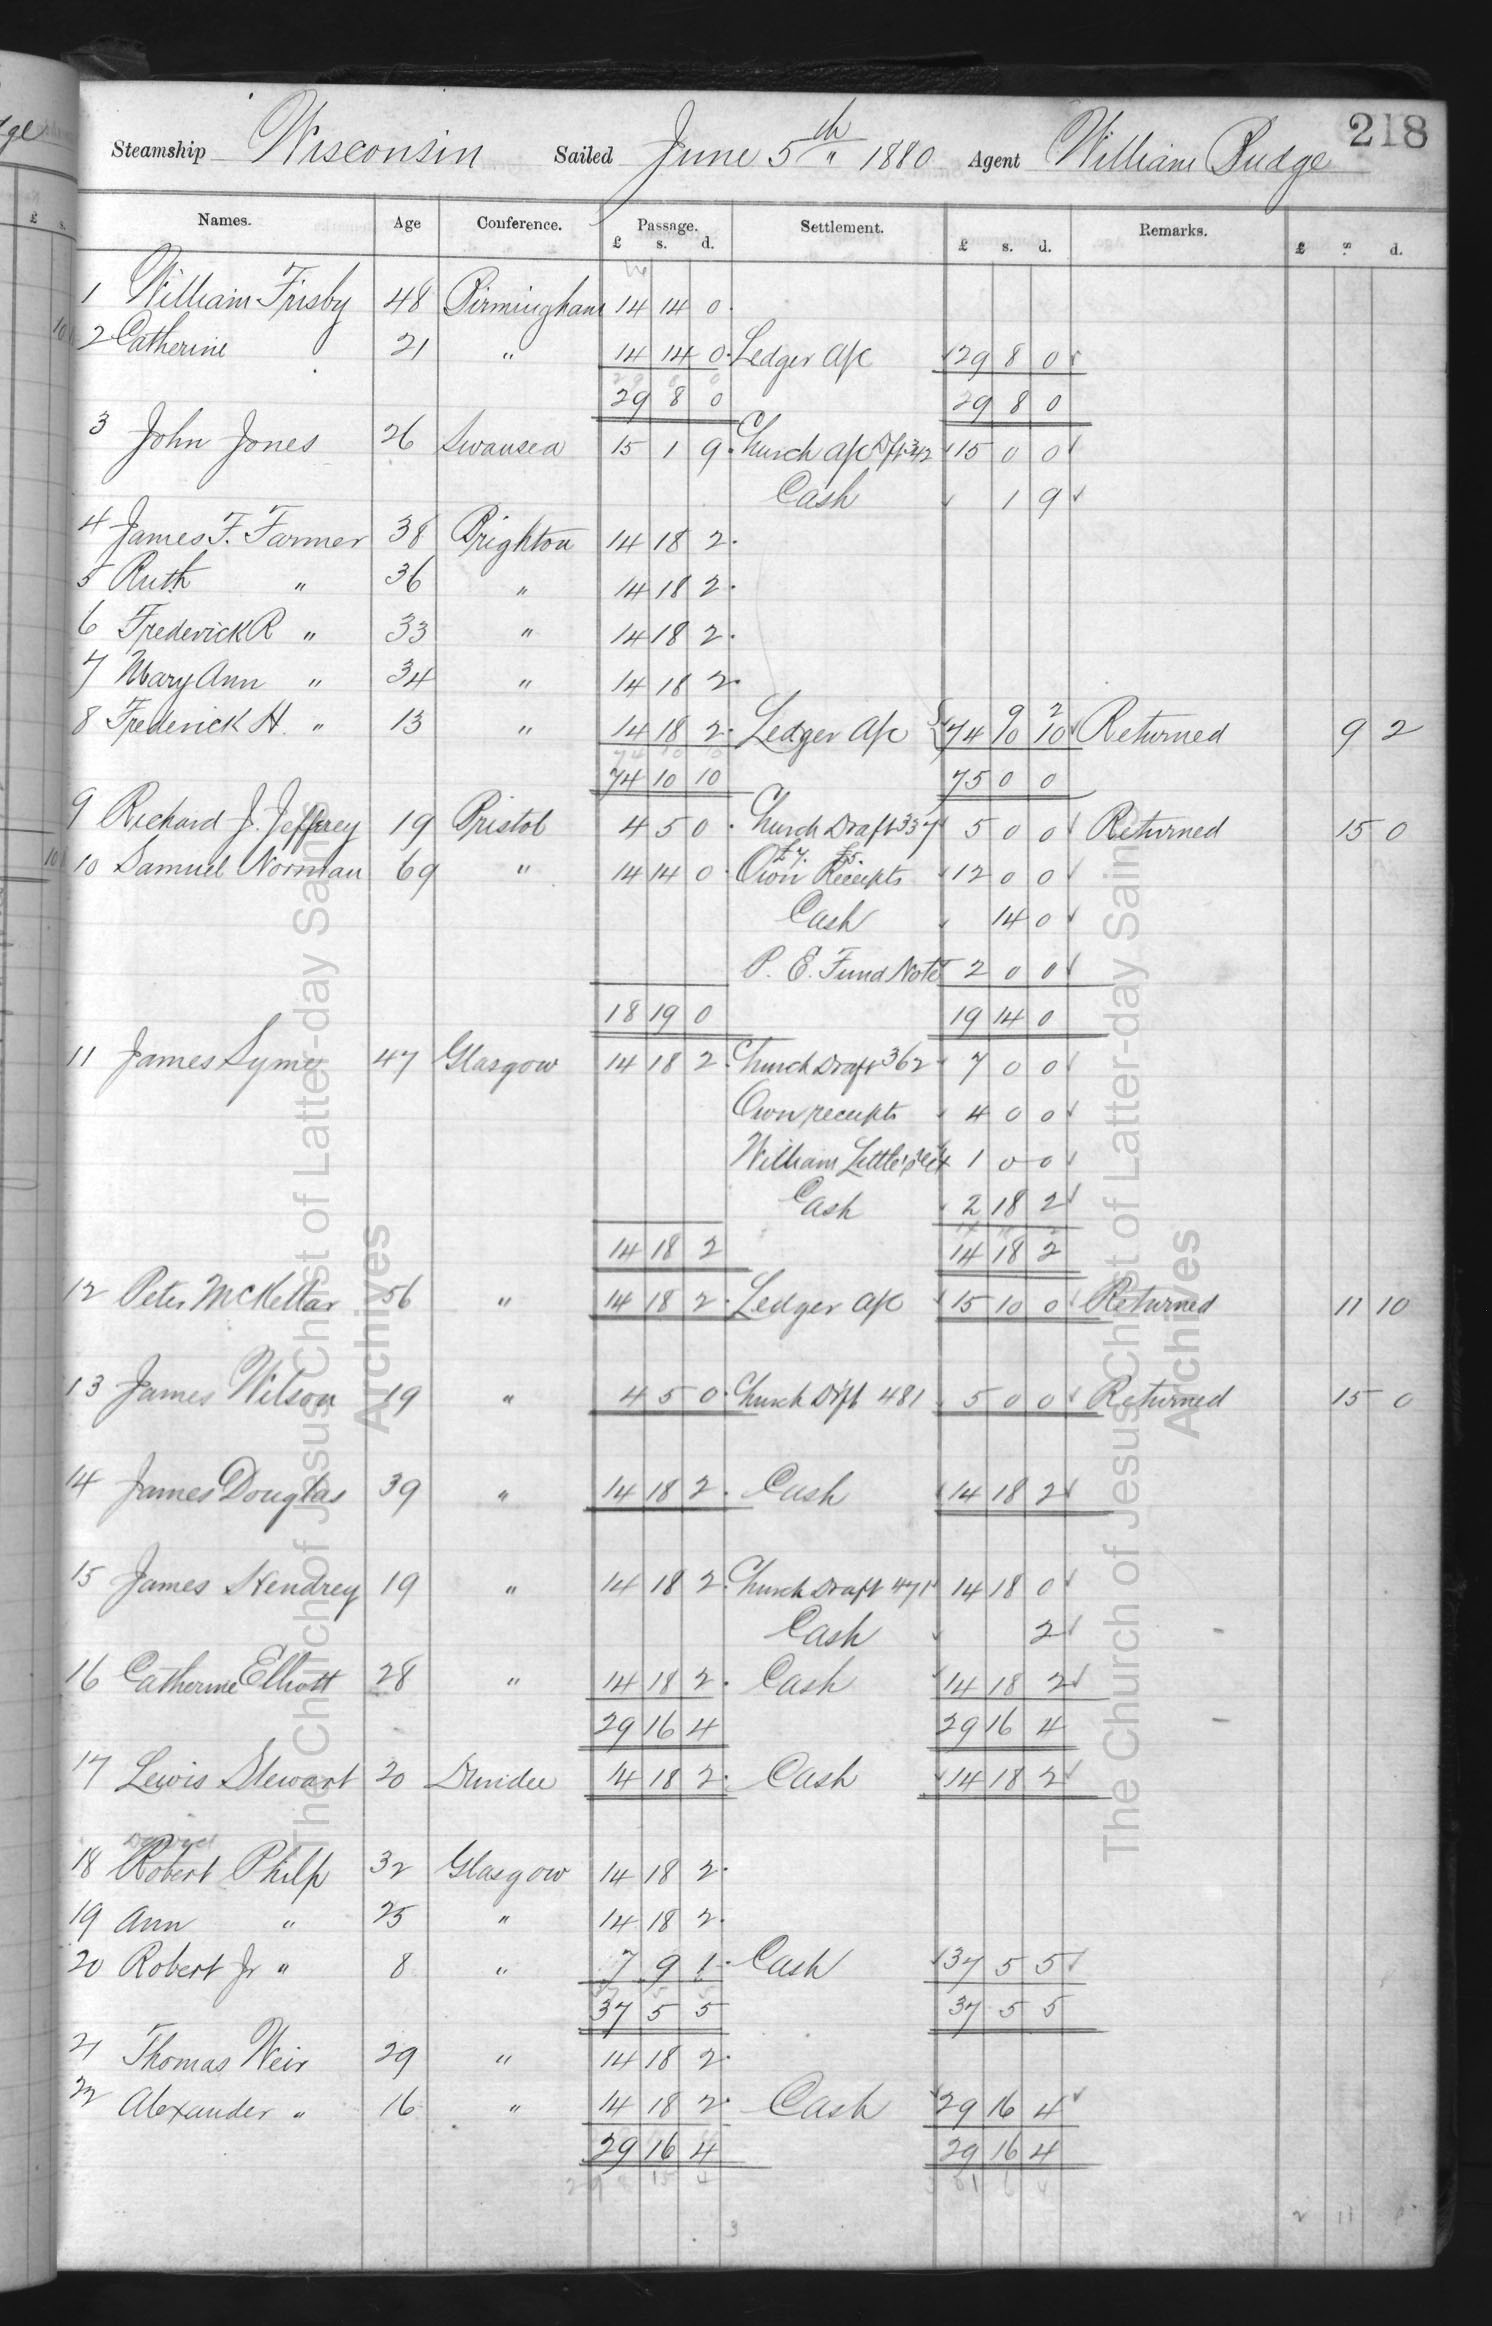 218
Steamship Wisconsin Sailed June 5th 1880 Agent William Budge
Names. Age Conference. Passage. Settlement. Remarks.
£ s. d. £ s. d. £ s. d.
1 William Frisby 48 Birmingham 14 14 0
2 Catherine 21 " 14 14 0 Ledger a/c 29 8 0
29 8 0 29 8 0
3 John Jones 26 Swansea 15 1 9 Church a/c Dft 342 15 0 0
Cash 1 9
4 James F. Farmer 38 Brighton 14 18 2
5 Ruth " 36 " 14 18 2
6 Frederick R " 33 " 14 18 2
7 Mary Ann " 34 " 14 18 2
8 Frederick H. " 13 " 14 18 2 Ledger a/c 74 10 10 Returned 9 2
9 2
74 10 10 75 0 0
9 Richard J. Jeffrey 19 Bristol 4 5 0 Church Draft 337 5 0 0 Returned 15 0
£7. £5.
10 Samuel Norman 69 " 14 14 0 Own Receipts 12 0 0
Cash 14 0
P. E. Fund Note 2 0 0
18 19 0 19 14 0
11 James Syme 47 Glasgow 14 18 2 Church Draft 362 7 0 0
Own receipts 4 0 0
William Little's 1 0 0
Cash 2 18 2
14 18 2 14 18 2
12 Peter McKellar 56 " 14 18 2 Ledger a/c 15 10 0 Returned 11 10
13 James Wilson 19 " 4 5 0 Church Dift 481 5 0 0 Returned 15 0
14 James Douglas 39 " 14 18 2 Cash 14 18 2
15 James Hendrey 19 " 14 18 2 Church Draft 471 14 18 0
Cash 2
16 Catherine Elliott 28 " 14 18 2 Cash 14 18 2
29 16 4 29 16 4
17 Lewis Stewart 20 Dundee 14 18 2 Cash 14 18 2
18 Robert Philp 32 Glasgow 14 18 2
19 Ann " 25 " 14 18 2
20 Robert Jr " 8 " 7 9 1 Cash 37 5 5
37 5 5 37 5 5
21 Thomas Weir 29 " 14 18 2
22 Alexander " 16 " 14 18 2 Cash 29 16 4
29 16 4 29 16 4
The Church of Jesus Christ of Latter-day Saints
Archives
The Church of Jesus Christ of Latter-day Saints
Archives